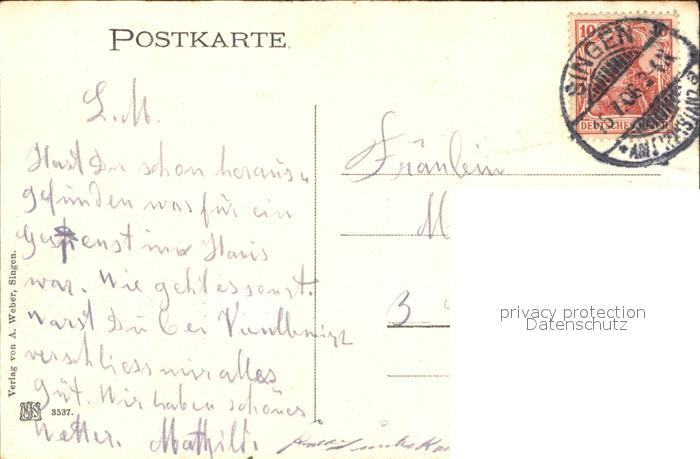 POSTKARTE
L. M.
Hast Du schon heraus-
gefunden was für ein
Gespenst im Haus
war. Wie geht es sonst.
Warst Du bei
verschliess mir alles
gut. Wir haben schönes
Wetter. Mathild.
Fräulein
M
B
privacy protection
Datenschutz
Verlag von A. Weber, Singen.
3537.
10
DEUTSCHES REICH
SINGEN